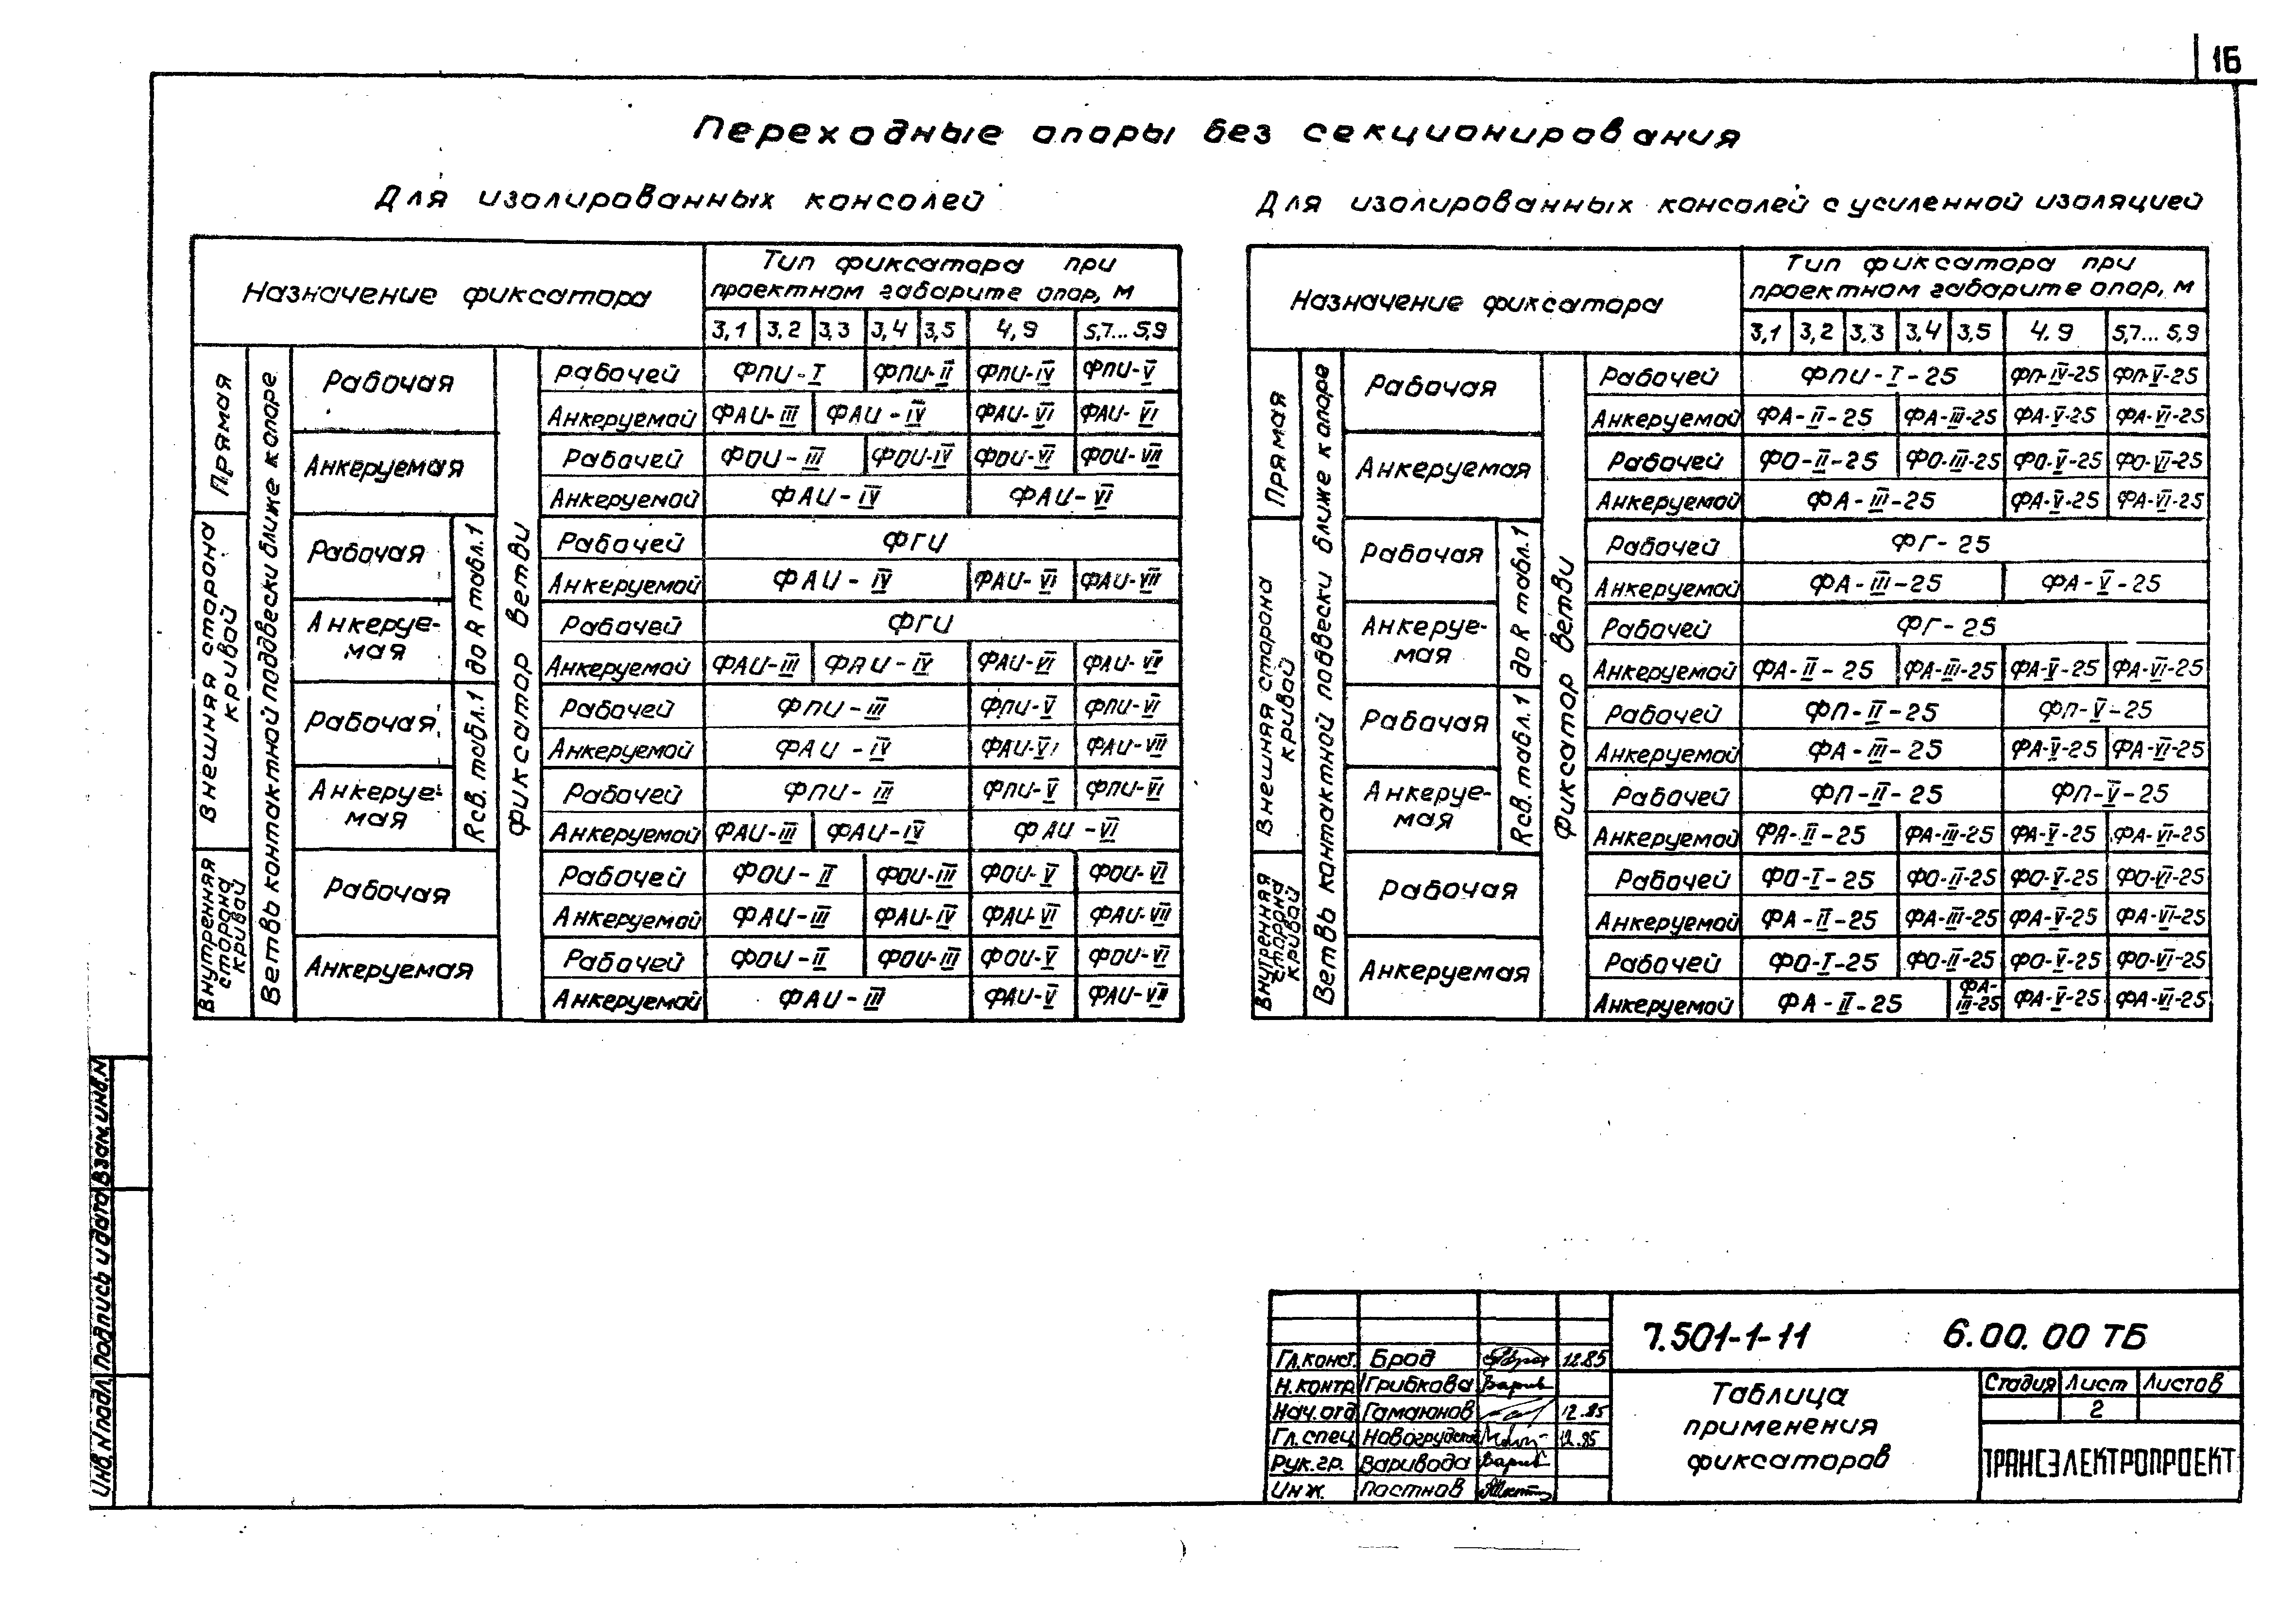 16
Переходные опоры без секционирования
Для изолированных консолей
Назначение фиксатора
Тип фиксатора при
проектном габарите опор, м
3,1 3,2 3,3 3,4 3,5 4,9 5,7...5,9
Прямая
Внешняя сторона
кривой
Внутренняя
сторона
кривой
Ветвь контактной подвески ближе к опоре
Фиксатор ветви
до R табл.1
Rсв. табл.1
Рабочая
Рабочей ФПИ-I ФПИ-II ФПИ-IV ФПИ-V
Анкеруемой ФАИ-III ФАИ-IV ФАИ-VI ФАИ-VI
Анкеруемая
Рабочей ФОИ-III ФОИ-IV ФОИ-VI ФОИ-VII
Анкеруемой ФАИ-IV ФАИ-VI
Рабочая
Рабочей ФГИ
Анкеруемой ФАИ-IV ФАИ-VI ФАИ-VII
Анкеруе-
мая
Рабочей ФГИ
Анкеруемой ФАИ-III ФАИ-IV ФАИ-VI ФАИ-VII
Рабочая
Рабочей ФПИ-III ФПИ-V ФПИ-VI
Анкеруемой ФАИ-IV ФАИ-VI ФАИ-VII
Анкеруе-
мая
Рабочей ФПИ-III ФПИ-V ФПИ-VI
Анкеруемой ФАИ-III ФАИ-IV ФАИ-VI
Рабочая
Рабочей ФОИ-II ФОИ-III ФОИ-V ФОИ-VI
Анкеруемой ФАИ-III ФАИ-IV ФАИ-VI ФАИ-VII
Анкеруемая
Рабочей ФОИ-II ФОИ-III ФОИ-V ФОИ-VI
Анкеруемой ФАИ-III ФАИ-V ФАИ-VII
Для изолированных консолей с усиленной изоляцией
Назначение фиксатора
Тип фиксатора при
проектном габарите опор, м
3,1 3,2 3,3 3,4 3,5 4,9 5,7...5,9
Прямая
Внешняя сторона
кривой
Внутренняя
сторона
кривой
Ветвь контактной подвески ближе к опоре
Фиксатор ветви
до R табл.1
Rсв. табл.1
Рабочая
Рабочей ФПИ-I-25 ФП-IV-25 ФП-V-25
Анкеруемой ФА-II-25 ФА-III-25 ФА-V-25 ФА-VI-25
Анкеруемая
Рабочей ФО-II-25 ФО-III-25 ФО-V-25 ФО-VI-25
Анкеруемой ФА-III-25 ФА-V-25 ФА-VI-25
Рабочая
Рабочей ФГ-25
Анкеруемой ФА-III-25 ФА-V-25
Анкеруе-
мая
Рабочей ФГ-25
Анкеруемой ФА-II-25 ФА-III-25 ФА-V-25 ФА-VI-25
Рабочая
Рабочей ФП-II-25 ФП-V-25
Анкеруемой ФА-III-25 ФА-V-25 ФА-VI-25
Анкеруе-
мая
Рабочей ФП-II-25 ФП-V-25
Анкеруемой ФА-II-25 ФА-III-25 ФА-V-25 ФА-VI-25
Рабочая
Рабочей ФО-I-25 ФО-II-25 ФО-V-25 ФО-VI-25
Анкеруемой ФА-II-25 ФА-III-25 ФА-V-25 ФА-VI-25
Анкеруемая
Рабочей ФО-I-25 ФО-II-25 ФО-V-25 ФО-VI-25
Анкеруемой ФА-II-25 ФА-III-25 ФА-V-25 ФА-VI-25
Инв. N подл. Подпись и дата Взам. инв. N
7.501-1-11 6.00.00 ТБ
Гл. конст. Брод 12.85
Н. контр. Грибкова
Нач. отд Гамаюнов 12.85
Гл. спец. 12.85
Рук. гр. Варивода
Инж. Постнов
Таблица
применения
фиксаторов
Стадия Лист Листов
2
ТРАНСЭЛЕКТРОПРОЕКТ